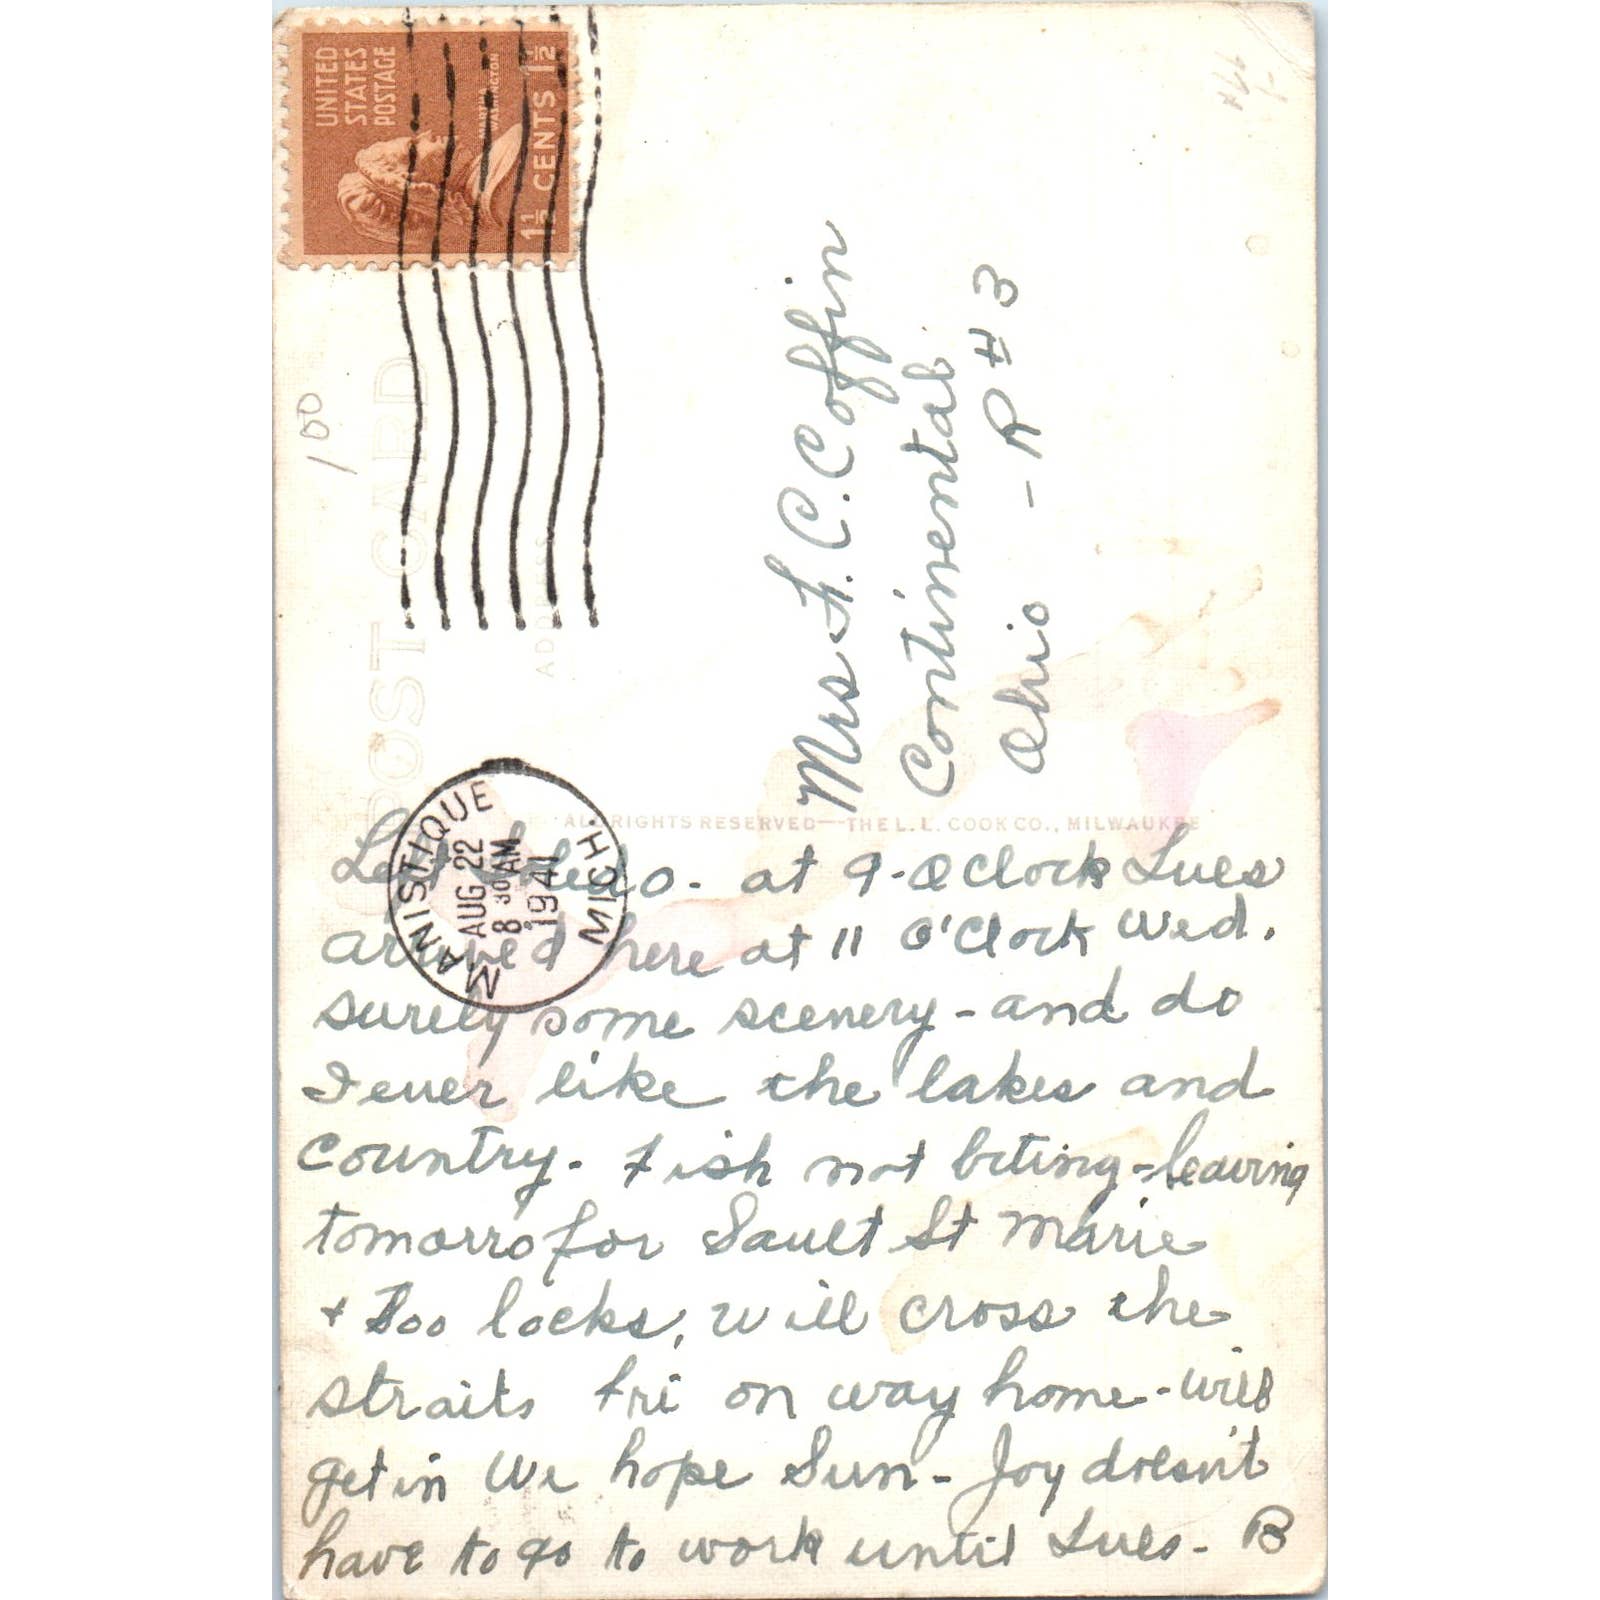 UNITED
STATES
POSTAGE
MARTHA
WASHINGTON
1½ CENTS 1½
100
POST CARD
ADDRESS
MANISTIQUE
AUG 22
8 30 AM
1941
MICH.
Mrs F. C. Coffin
Continental
Ohio - R#3
ALL RIGHTS RESERVED—THE L. L. COOK CO., MILWAUKEE
Left Toledo. at 9-O Clock Tues
arrived here at 11 O'Clock Wed.
surely some scenery - and do
I ever like the lakes and
country. Fish not biting - leaving
tomorro for Sault St Marie
+ Soo locks, will cross the
straits Fri on way home - will
get in we hope Sun - Joy doesn't
have to go to work until Tues - B